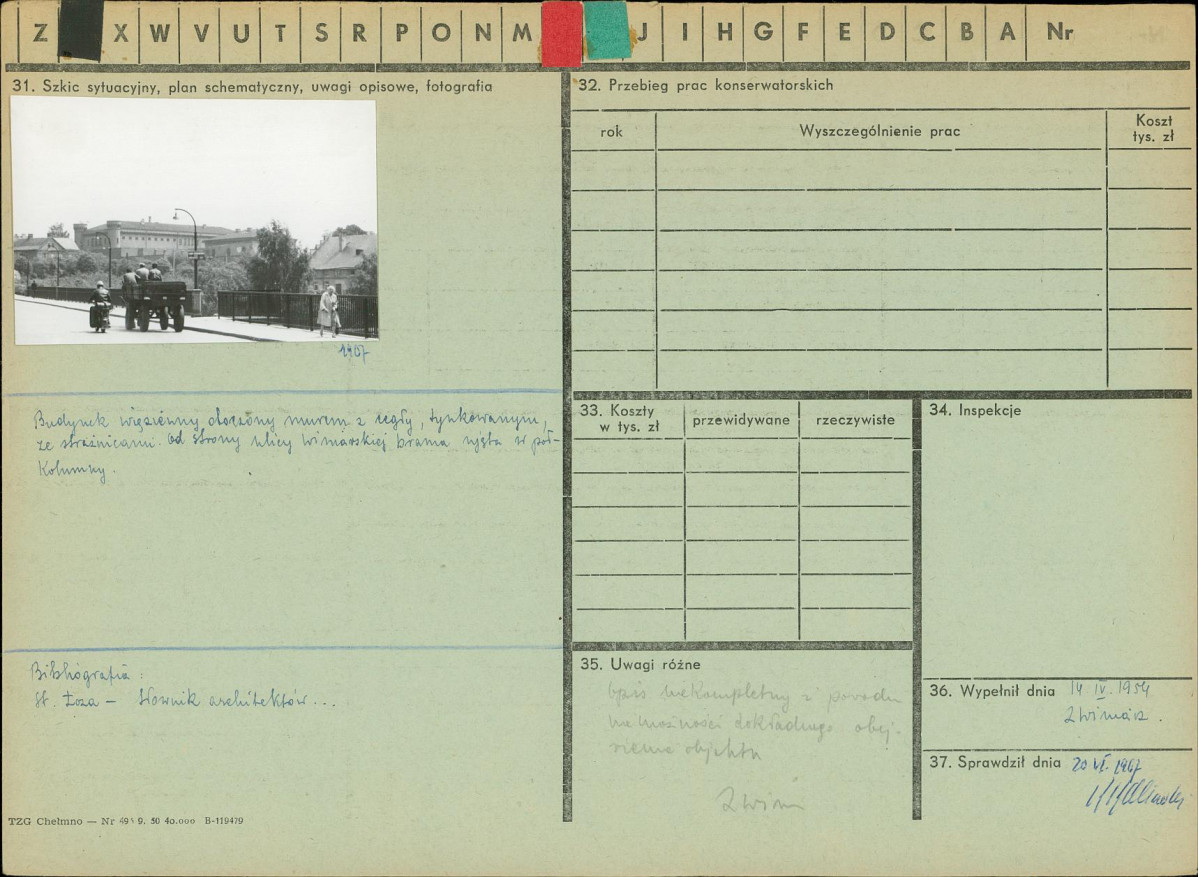 Z X W V U T S R P O N M J I H G F E D C B A Nr
31. Szkic sytuacyjny, plan schematyczny, uwagi opisowe, fotografia
1967
Budynek więzienny otoczony murem z cegły, tynkowanym,
ze strażnicami. Od strony ulicy brama ujęta w pół-
kolumny.
Bibliografia:
St. Łoza – Słownik architektów...
TZG Chełmno — Nr 491 9. 50 40.000 B-119479
32. Przebieg prac konserwatorskich
rok Wyszczególnienie prac Koszt
tys. zł
33. Koszty
w tys. zł przewidywane rzeczywiste
34. Inspekcje
35. Uwagi różne
Opis niekompletny z powodu
niemożności dokładnego obej-
rzenia objektu
36. Wypełnił dnia 14 IV. 1954
37. Sprawdził dnia 20 VI. 1967